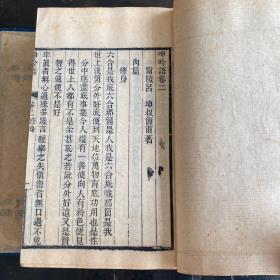 呻吟語卷二
寧陵呂 坤叔簡甫著
內篇
修身
六合是我底六合那箇是人我是六合底我那箇是我
世上沒箇分外好底便到天地位萬物育底功用也是性
分中應盡底事業今人纔有一善便向人有矜色便見
得世上人都有不是余甚恥之若說分外好這又是賢
智之過便不是好
率真者無心過殊多躁言輕舉之失慎密者無口過不免